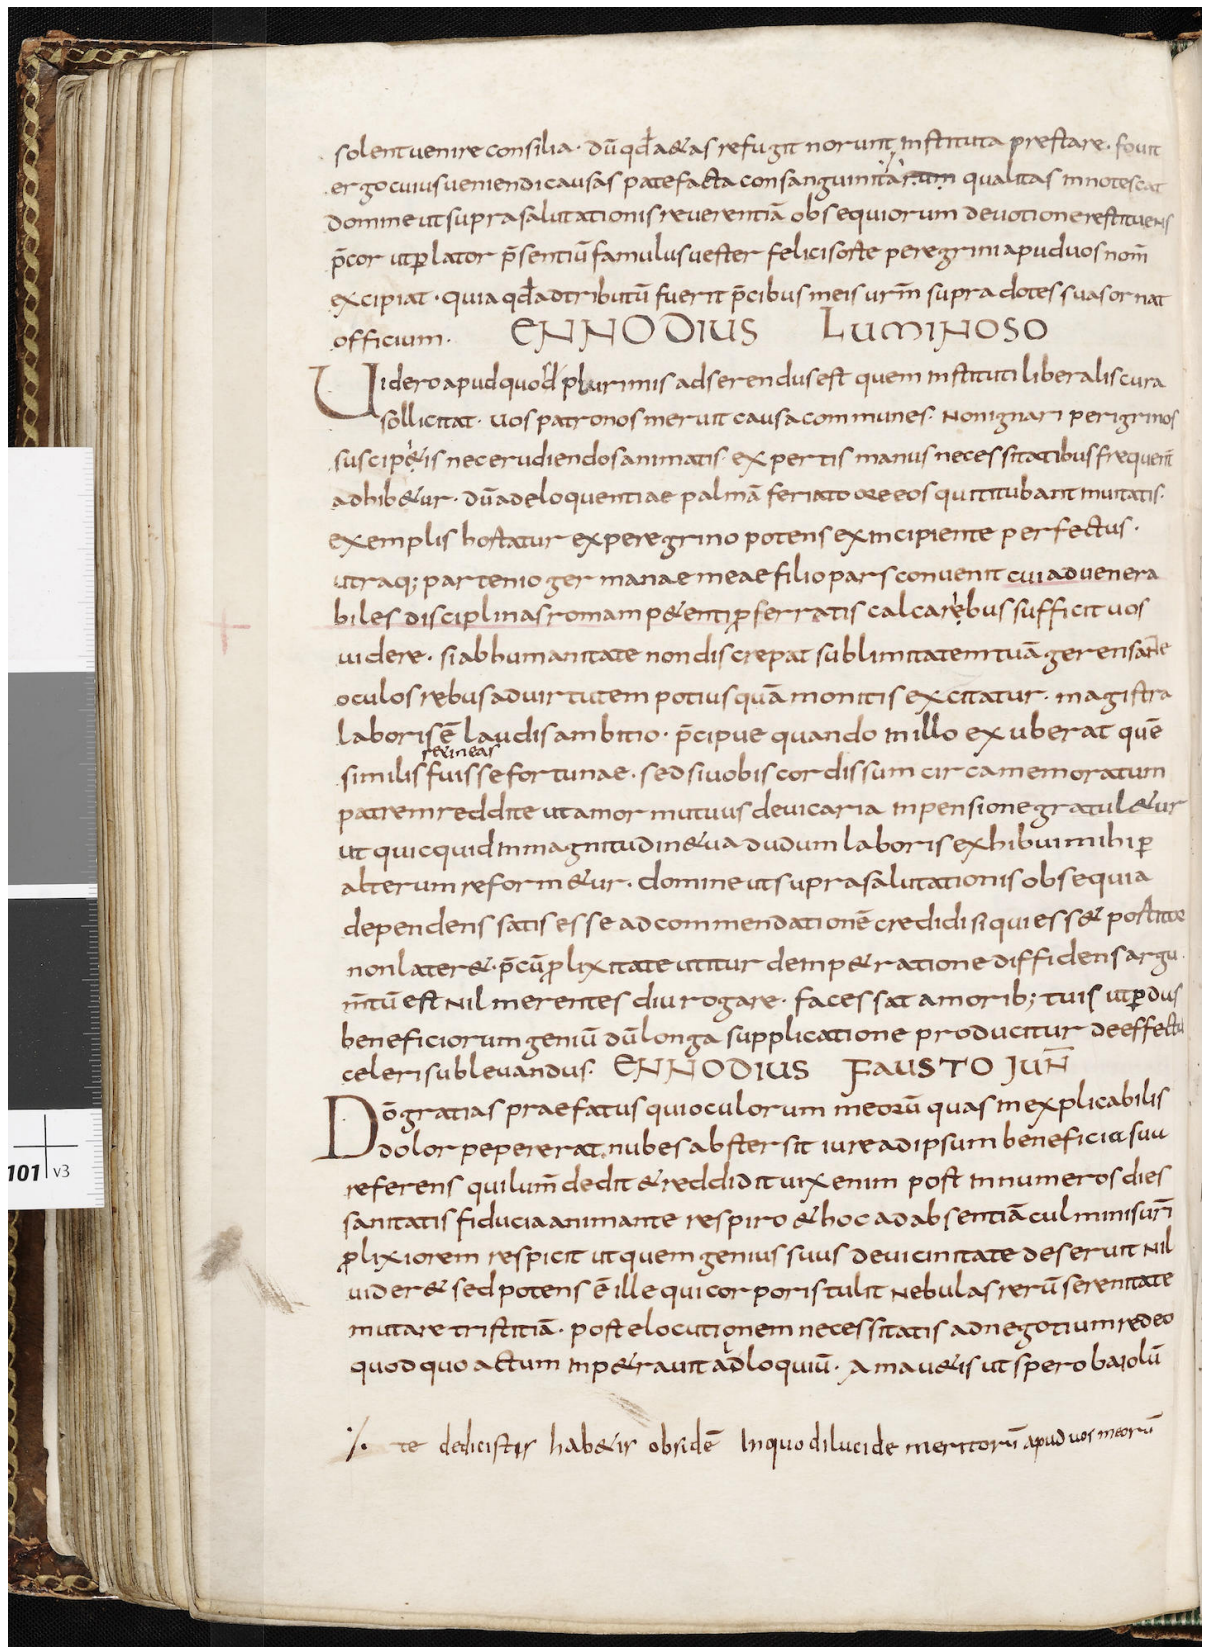 solent uenire consilia · dū qđ a&as refugit norunt instituta prestare · fouit
ergo cuius ueniendi causas patefacta consanguinitarum qualitas innotescat
domine ut supra salutationis reuerentiā obsequiorum deuotione restituens
p̄cor ut ꝑlator p̄sentiū famulus uester felici sorte peregrini apud uos nom̄
excipiat · quia qđ adtributū fuerit p̄cibus meis urm̄ supra dotes suas ornat
officium · ENNODIUS LUMINOSO
Uidero apud quod plurimis adserendus est quem instituti liberalis cura
sollicitat · uos patronos meruit causa communes · Non ignari perigrinos
suscip&is nec erudiendos animatis · expertis manus necessitatibus frequent̄
adhib&ur · dū ad eloquentiae palmā feriato ore eos qui titubant inuitatis ·
exemplis hortatur ex peregrino potens ex incipiente perfectus ·
utraq; partenio germanae meae filio pars conuenit cui ad uenera
biles disciplinas romam p&enti ꝓ ferratis calcaribus sufficit uos
uidere · si ab humanitate non discrepat sublimitatem tuā gerens ante
oculos rebus ad uirtutem potius quā monitis excitatur · magistra
laboris ē laudis ambitio · p̄cipue quando in illo exuberat quē
r&ineas
similis fuisse fortunae · sed si uobis cordis sum circa memoratum
patrem reddite ut amor mutuus de uicaria inpensione gratul&ur
ut quicquid in magnitudine tua dudum laboris exhibui mihi ꝑ
alterum reform&ur · domine ut supra salutationis obsequia
dependens satis esse ad commendationē credidi si qui ess& postitue
non later& · p̄cū ꝓlixitate utitur de inp&ratione diffidens argu
m̄tū est Nil merentes diu rogare · facessat amorib; tuis ut ꝑdus
beneficiorum geniū dū longa supplicatione producitur de effectu
celeri subleuandus · ENNODIUS FAUSTO IUN̄
Dō gratias praefatus qui oculorum meorū quas inexplicabilis
dolor pepererat nubes abstersit iure ad ipsum beneficia sua
referens qui lum̄ dedit & reddidit uix enim post innumeros dies
sanitatis fiducia animante respiro & hoc ad absentiā culminis urī
ꝓlixiorem respicit ut quem genius suus de uicinitate deseruit Nil
uider& sed potens ē ille qui corporis tulit Nebulas rerū serenitate
mutare tristitiā · post elocutionem necessitatis ad negotium redeo
quod quo actum inp&rauit adloquiū · Amau&is ut spero baiolū
·/· te dedicistis hab&is obsidē In quo dilucide meritorū apud uos meorū